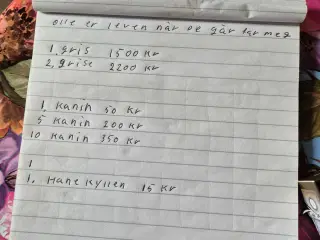 alle er leven når de går far meg
1, gris 1500 Kr
2, grise 2200 Kr
1 Kanin 50 Kr
5 Kanin 200 Kr
10 Kanin 350 Kr
1
1. Hane Kyllen 15 Kr